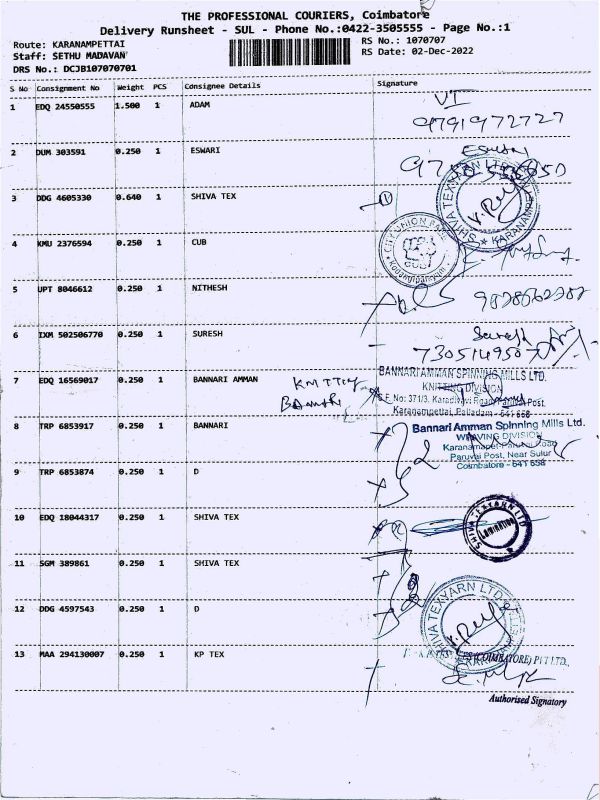 THE PROFESSIONAL COURIERS, Coimbatore
Delivery Runsheet - SUL - Phone No.:0422-3505555 - Page No.:1
Route: KARANAMPETTAI
RS No.: 1070707
Staff: SETHU MADAVAN
RS Date: 02-Dec-2022
DRS No.: DCJB107070701
S No Consignment No Weight PCS Consignee Details Signature
1 EDQ 24550555 1.500 1 ADAM
9791972727
2 DUM 303591 0.250 1 ESWARI
3 DDG 4605330 0.640 1 SHIVA TEX
SHIVA TEXYARN LTD KARANAMPET
4 KMU 2376594 0.250 1 CUB
CITY UNION BANK CUB
5 UPT 8046612 0.250 1 NITHESH
6 IXM 502506770 0.250 1 SURESH
Suresh
7 EDQ 16569017 0.250 1 BANNARI AMMAN
KNITTING
BANNARI AMMAN SPINNING MILLS LTD.
KNITTING DIVISION
S.F. No: 371/3, Karadivavi Road, Paruvai Post,
Karanampettai, Palladam - 641 658
8 TRP 6853917 0.250 1 BANNARI
Bannari Amman Spinning Mills Ltd.
WEAVING DIVISION
Karanampet-Paruvai Road
Paruvai Post, Near Sulur
Coimbatore - 641 658
9 TRP 6853874 0.250 1 D
10 EDQ 18044317 0.250 1 SHIVA TEX
SHIVA TEXYARN LTD LAMINATION
11 SGM 389861 0.250 1 SHIVA TEX
12 DDG 4597543 0.250 1 D
SHIVA TEXYARN LTD
13 MAA 294130007 0.250 1 KP TEX
(COIMBATORE) PVT LTD.,
Authorised Signatory